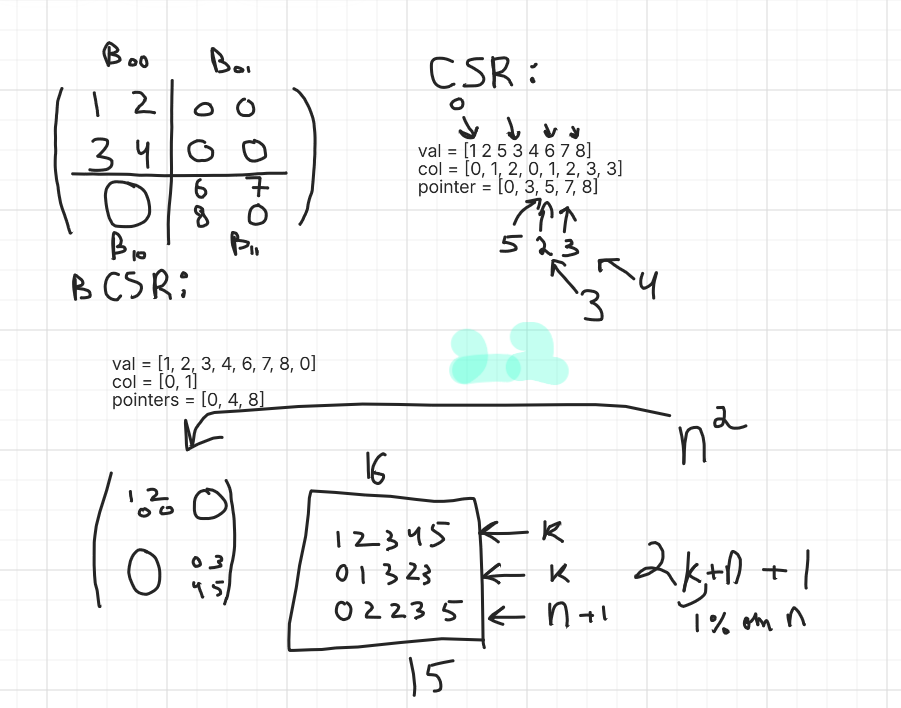 B00 B01
1 2 0 0
3 4 0 0
0 6 7
8 0
B10 B11
CSR:
0
val = [1 2 5 3 4 6 7 8]
col = [0, 1, 2, 0, 1, 2, 3, 3]
pointer = [0, 3, 5, 7, 8]
5 2 3
3 4
BCSR:
val = [1, 2, 3, 4, 6, 7, 8, 0]
col = [0, 1]
pointers = [0, 4, 8]
n²
1 2 0
0 0
0 0 3
4 5
16
1 2 3 4 5 ← k
0 1 3 2 3 ← k
0 2 2 3 5 ← n+1
15
2k+n+1
1% от n